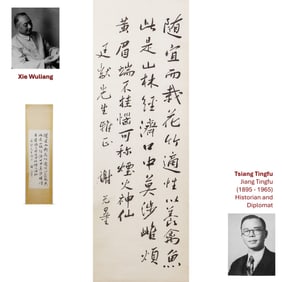 Xie Wuliang
随宜而栽花竹適性以養禽魚
此是山林經濟口中莫涉雌煩
黃眉端不挂惱可稱煙火神仙
廷黻先生雅正 謝无量
Tsiang Tingfu
Jiang Tingfu
(1895 - 1965)
Historian and
Diplomat